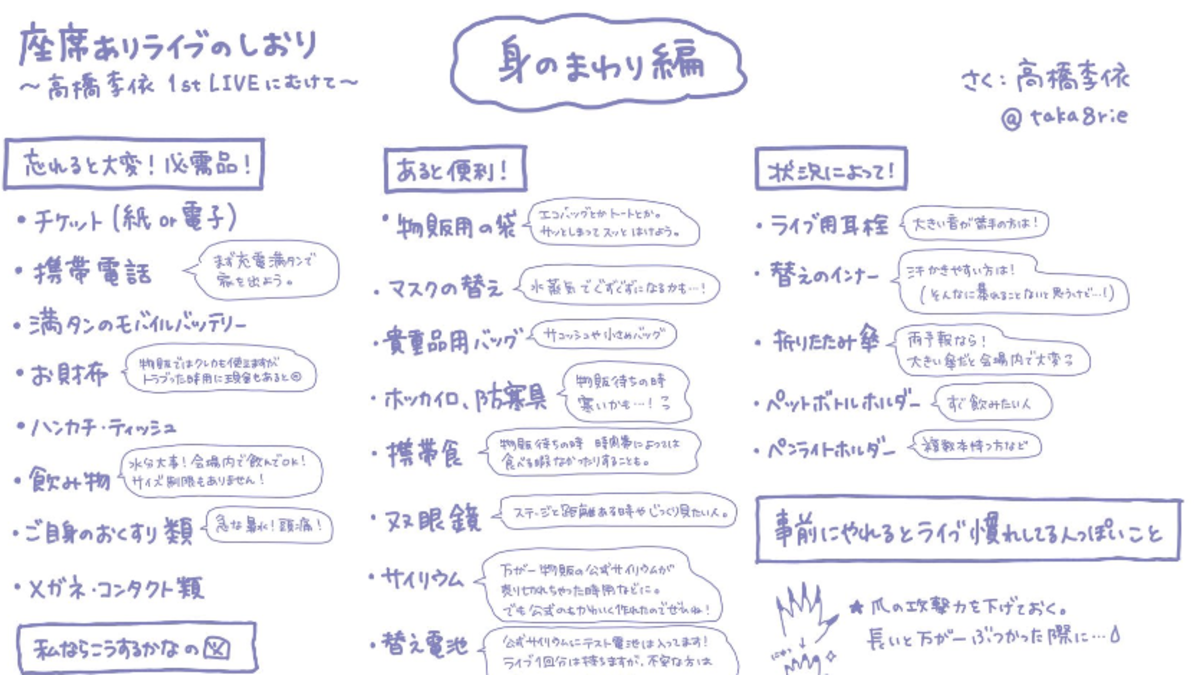 座席ありライブのしおり
～高橋李依 1st LIVEにむけて～
身のまわり編
さく：高橋李依
@taka8rie
忘れると大変！必需品！
・チケット(紙or電子)
・携帯電話
まず充電満タンで
家を出よう。
・満タンのモバイルバッテリー
・お財布
物販ではクレカも使えますが
トラブった時用に現金もあると◎
・ハンカチ・ティッシュ
・飲み物
水分大事！会場内で飲んでOK！
サイズ制限もありません！
・ご自身のおくすり類
急な鼻水！頭痛！
・メガネ・コンタクト類
私ならこうするかなの図
あると便利！
・物販用の袋
エコバッグとかトートとか。
サッとしまってスッとはけよう。
・マスクの替え
水蒸気でぐずぐずになるかも…！
・貴重品用バッグ
サコッシュや小さめバッグ
・ホッカイロ、防寒具
物販待ちの時
寒いかも…！
・携帯食
物販待ちの時 時間帯によっては
食べる暇なかったりすることも。
・双眼鏡
ステージと距離ある時やじっくり見たい人。
・サイリウム
万が一物販の公式サイリウムが
売り切れちゃった時用などに。
でも公式のもかわいく作れたのでぜひね！
・替え電池
公式サイリウムにテスト電池は入ってます！
ライブ1回分は持ちますが、不安な方は
状況によって！
・ライブ用耳栓
大きい音が苦手の方は！
・替えのインナー
汗かきやすい方は！
(そんなに暴れることないと思うけど…！)
・折りたたみ傘
雨予報なら！
大きい傘だと会場内で大変
・ペットボトルホルダー
すぐ飲みたい人
・ペンライトホルダー
複数本持つ方など
事前にやれるとライブ慣れしてる人っぽいこと
★爪の攻撃力を下げておく。
長いと万が一ぶつかった際に…